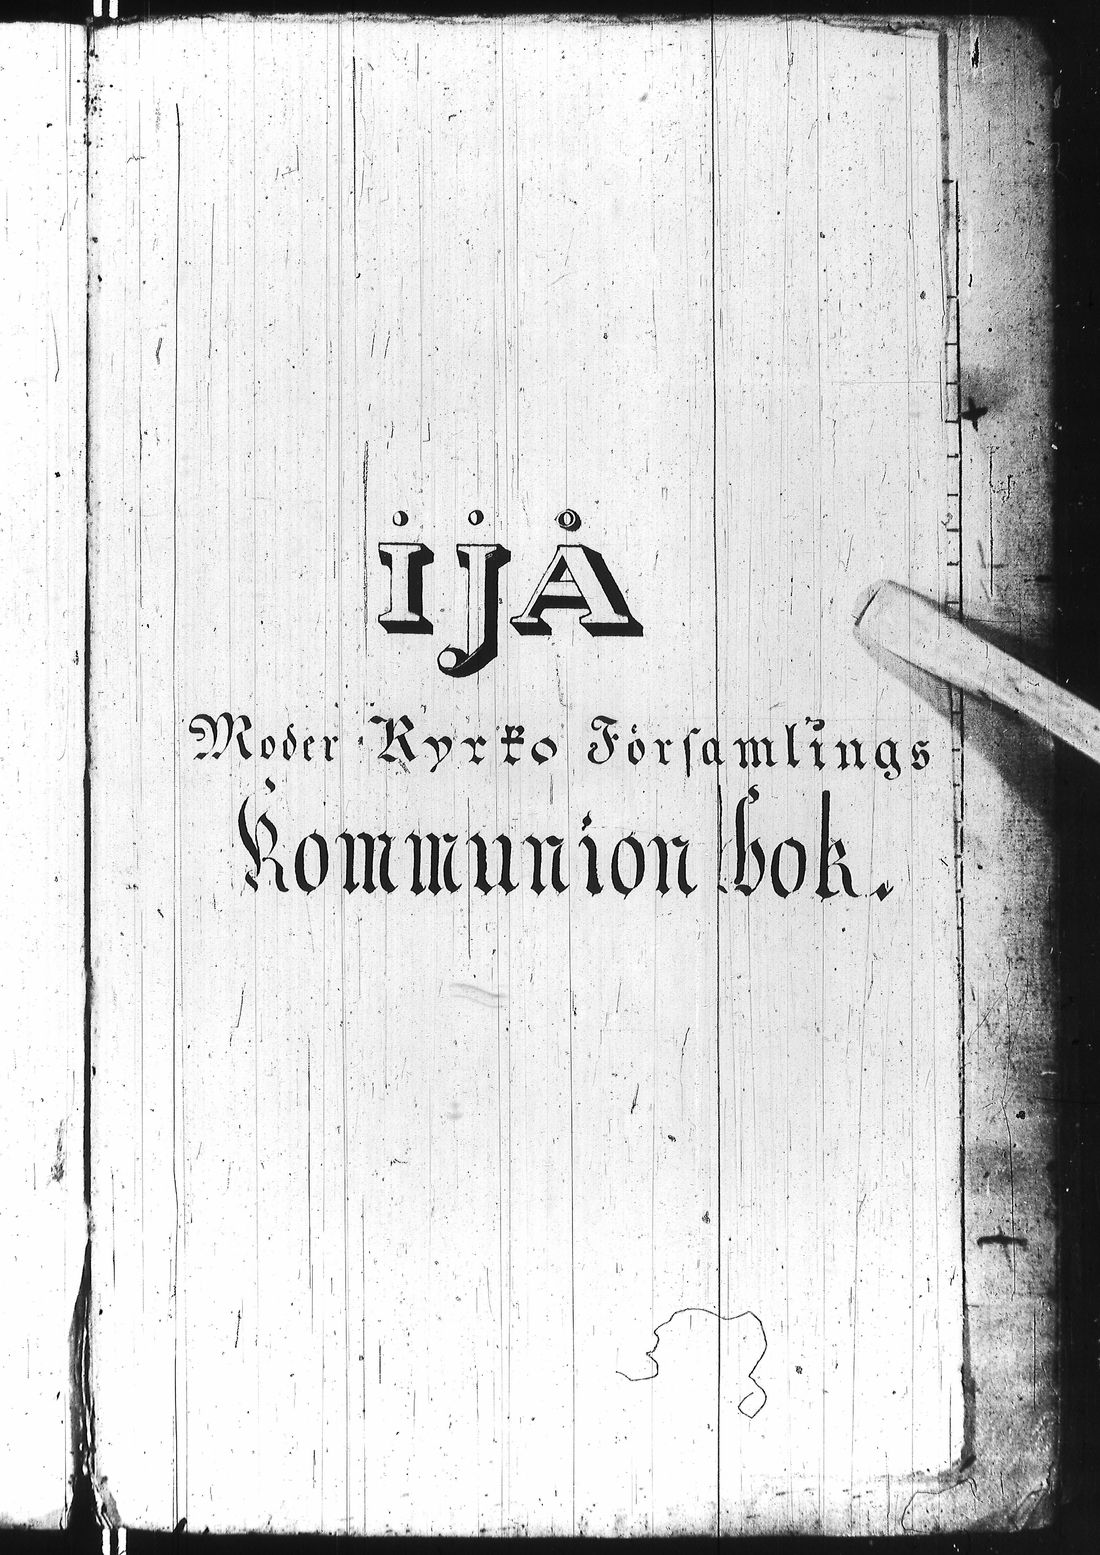 ijå
Moder Kyrko Församlings
Kommunion bok.